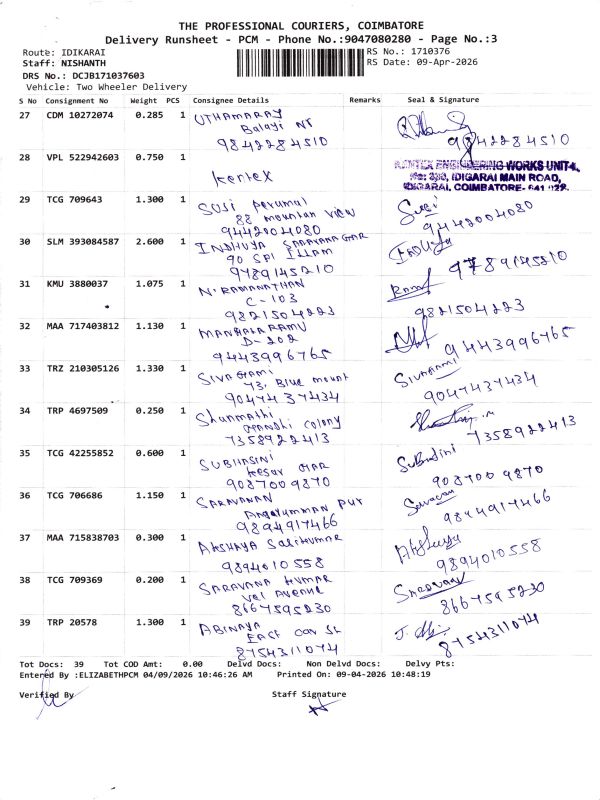 THE PROFESSIONAL COURIERS, COIMBATORE
Delivery Runsheet - PCM - Phone No.:9047080280 - Page No.:3
Route: IDIKARAI
RS No.: 1710376
Staff: NISHANTH
RS Date: 09-Apr-2026
DRS No.: DCJB171037603
Vehicle: Two Wheeler Delivery
S No Consignment No Weight PCS Consignee Details Remarks Seal & Signature
27 CDM 10272074 0.285 1 UTHAMARAJ
Balaji NT
9842284510 9842284510
28 VPL 522942603 0.750 1
Kentex
ENGINEERING WORKS UNIT-
IDIGARAI MAIN ROAD,
IDIGARAI, COIMBATORE-
29 TCG 709643 1.300 1 SUSI Perumal Susi
88 mountan view
9442004080 9442004080
30 SLM 393084587 2.600 1 INDHUYA SARAVANAGAR
90 SPI ILLAM
9789145210 9789145210
31 KMU 3880037 1.075 1 N. RAMANATHAN
C-103
9821504223 9821504223
32 MAA 717403812 1.130 1
D-202
9443996765 9443996765
33 TRZ 210305126 1.330 1 SIVAGAMI SIVAGAMI
73, Blue mount
9047437434 9047437434
34 TRP 4697509 0.250 1 Shunmathi
Gandhi Colony
7358922413 7358922413
35 TCG 42255852 0.600 1 SUBHASINI Subasini
Kesav
9087009870 9087009870
36 TCG 706686 1.150 1 SARAVANAN
9894917466 9844917466
37 MAA 715838703 0.300 1 AKSHAYA Sasikumar Akshaya
9894010558 9894010558
38 TCG 709369 0.200 1 SARAVANA KUMAR
Val Avenue
8667595230 8667595230
39 TRP 20578 1.300 1 ABINAYA
8754311074 8754311074
Tot Docs: 39 Tot COD Amt: 0.00 Delvd Docs: Non Delvd Docs: Delvy Pts:
Entered By :ELIZABETHPCM 04/09/2026 10:46:26 AM Printed On: 09-04-2026 10:48:19
Verified By Staff Signature